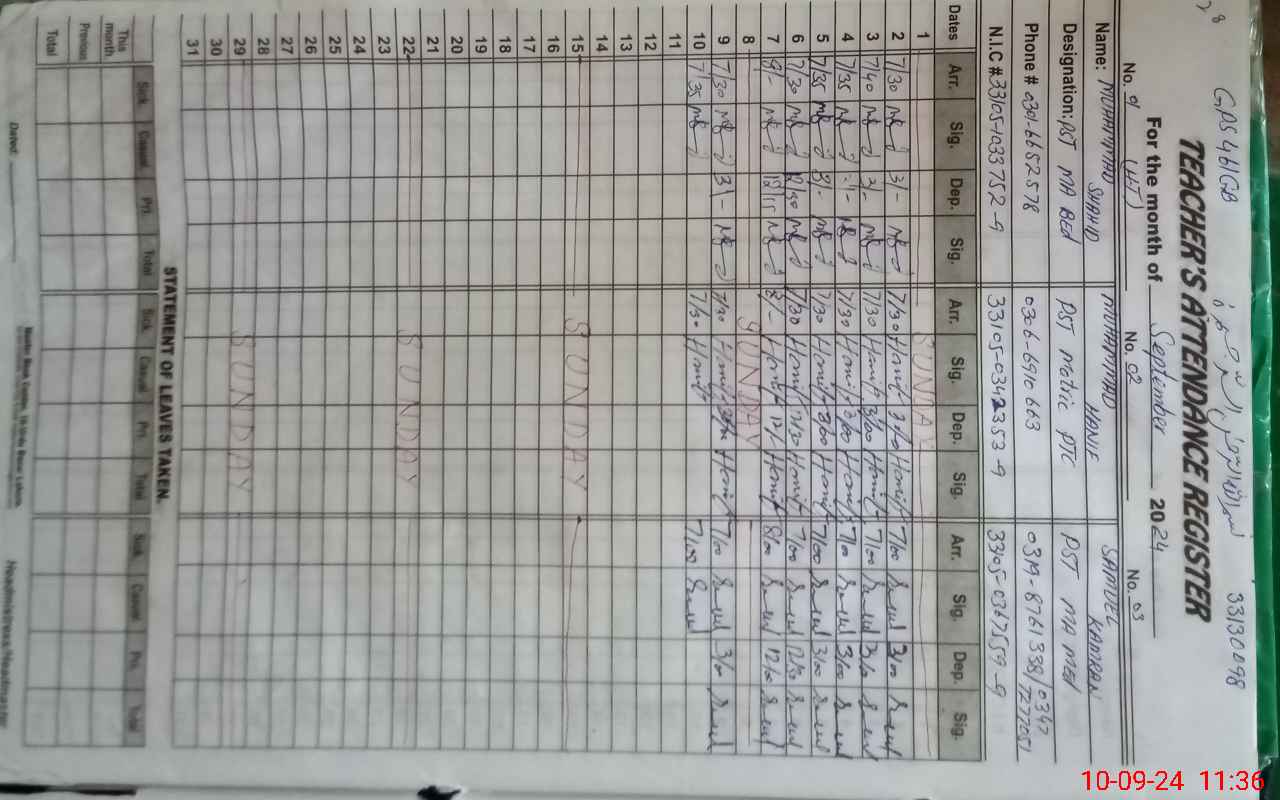 GPS 461GB 33130098
TEACHER'S ATTENDANCE REGISTER
For the month of September 2024
No. 01 (H.T) No. 02 No. 03
Name: MUHAMMAD SHAHID MUHAMMAD HANIF SAMUEL KAMRAN
Designation: PST MA BEd PST Matric PTC PST MA MEd
Phone # 0301-6652578 0306-6910663 0319-8761338/0347 7277051
N.I.C # 33105-1033752-9 33105-0342353-9 33105-0367559-9
Dates Arr. Sig. Dep. Sig. Arr. Sig. Dep. Sig. Arr. Sig. Dep. Sig.
1 SUNDAY
2 7/30 3/- 7/30 Hanif 3/00 Hanif 7/00 3/00
3 7/40 3/- 7/30 Hanif 3/00 Hanif 7/00 3/00
4 7/35 7/30 Hanif 3/00 Hanif 7/00 3/00
5 7/35 3/- 7/30 Hanif 3/00 Hanif 7/00 3/00
6 7/30 12/30 7/30 Hanif 12/30 Hanif 7/00 12/30
7 8/- 12/15 8/- Hanif 12/- Hanif 8/00 12/00
8 SUNDAY
9 7/30 3/- 7/30 Hanif Hanif 7/00 3/00
10 7/35 7/30 Hanif 7/00
11
12
13
14
15 SUNDAY
16
17
18
19
20
21
22 SUNDAY
23
24
25
26
27
28
29 SUNDAY
30
31
STATEMENT OF LEAVES TAKEN.
Sick Casual Pri. Total Sick Casual Pri. Total Sick Casual Pri. Total
This month
Previous
Total
Dated Headmistress/Headmaster
10-09-24 11:36